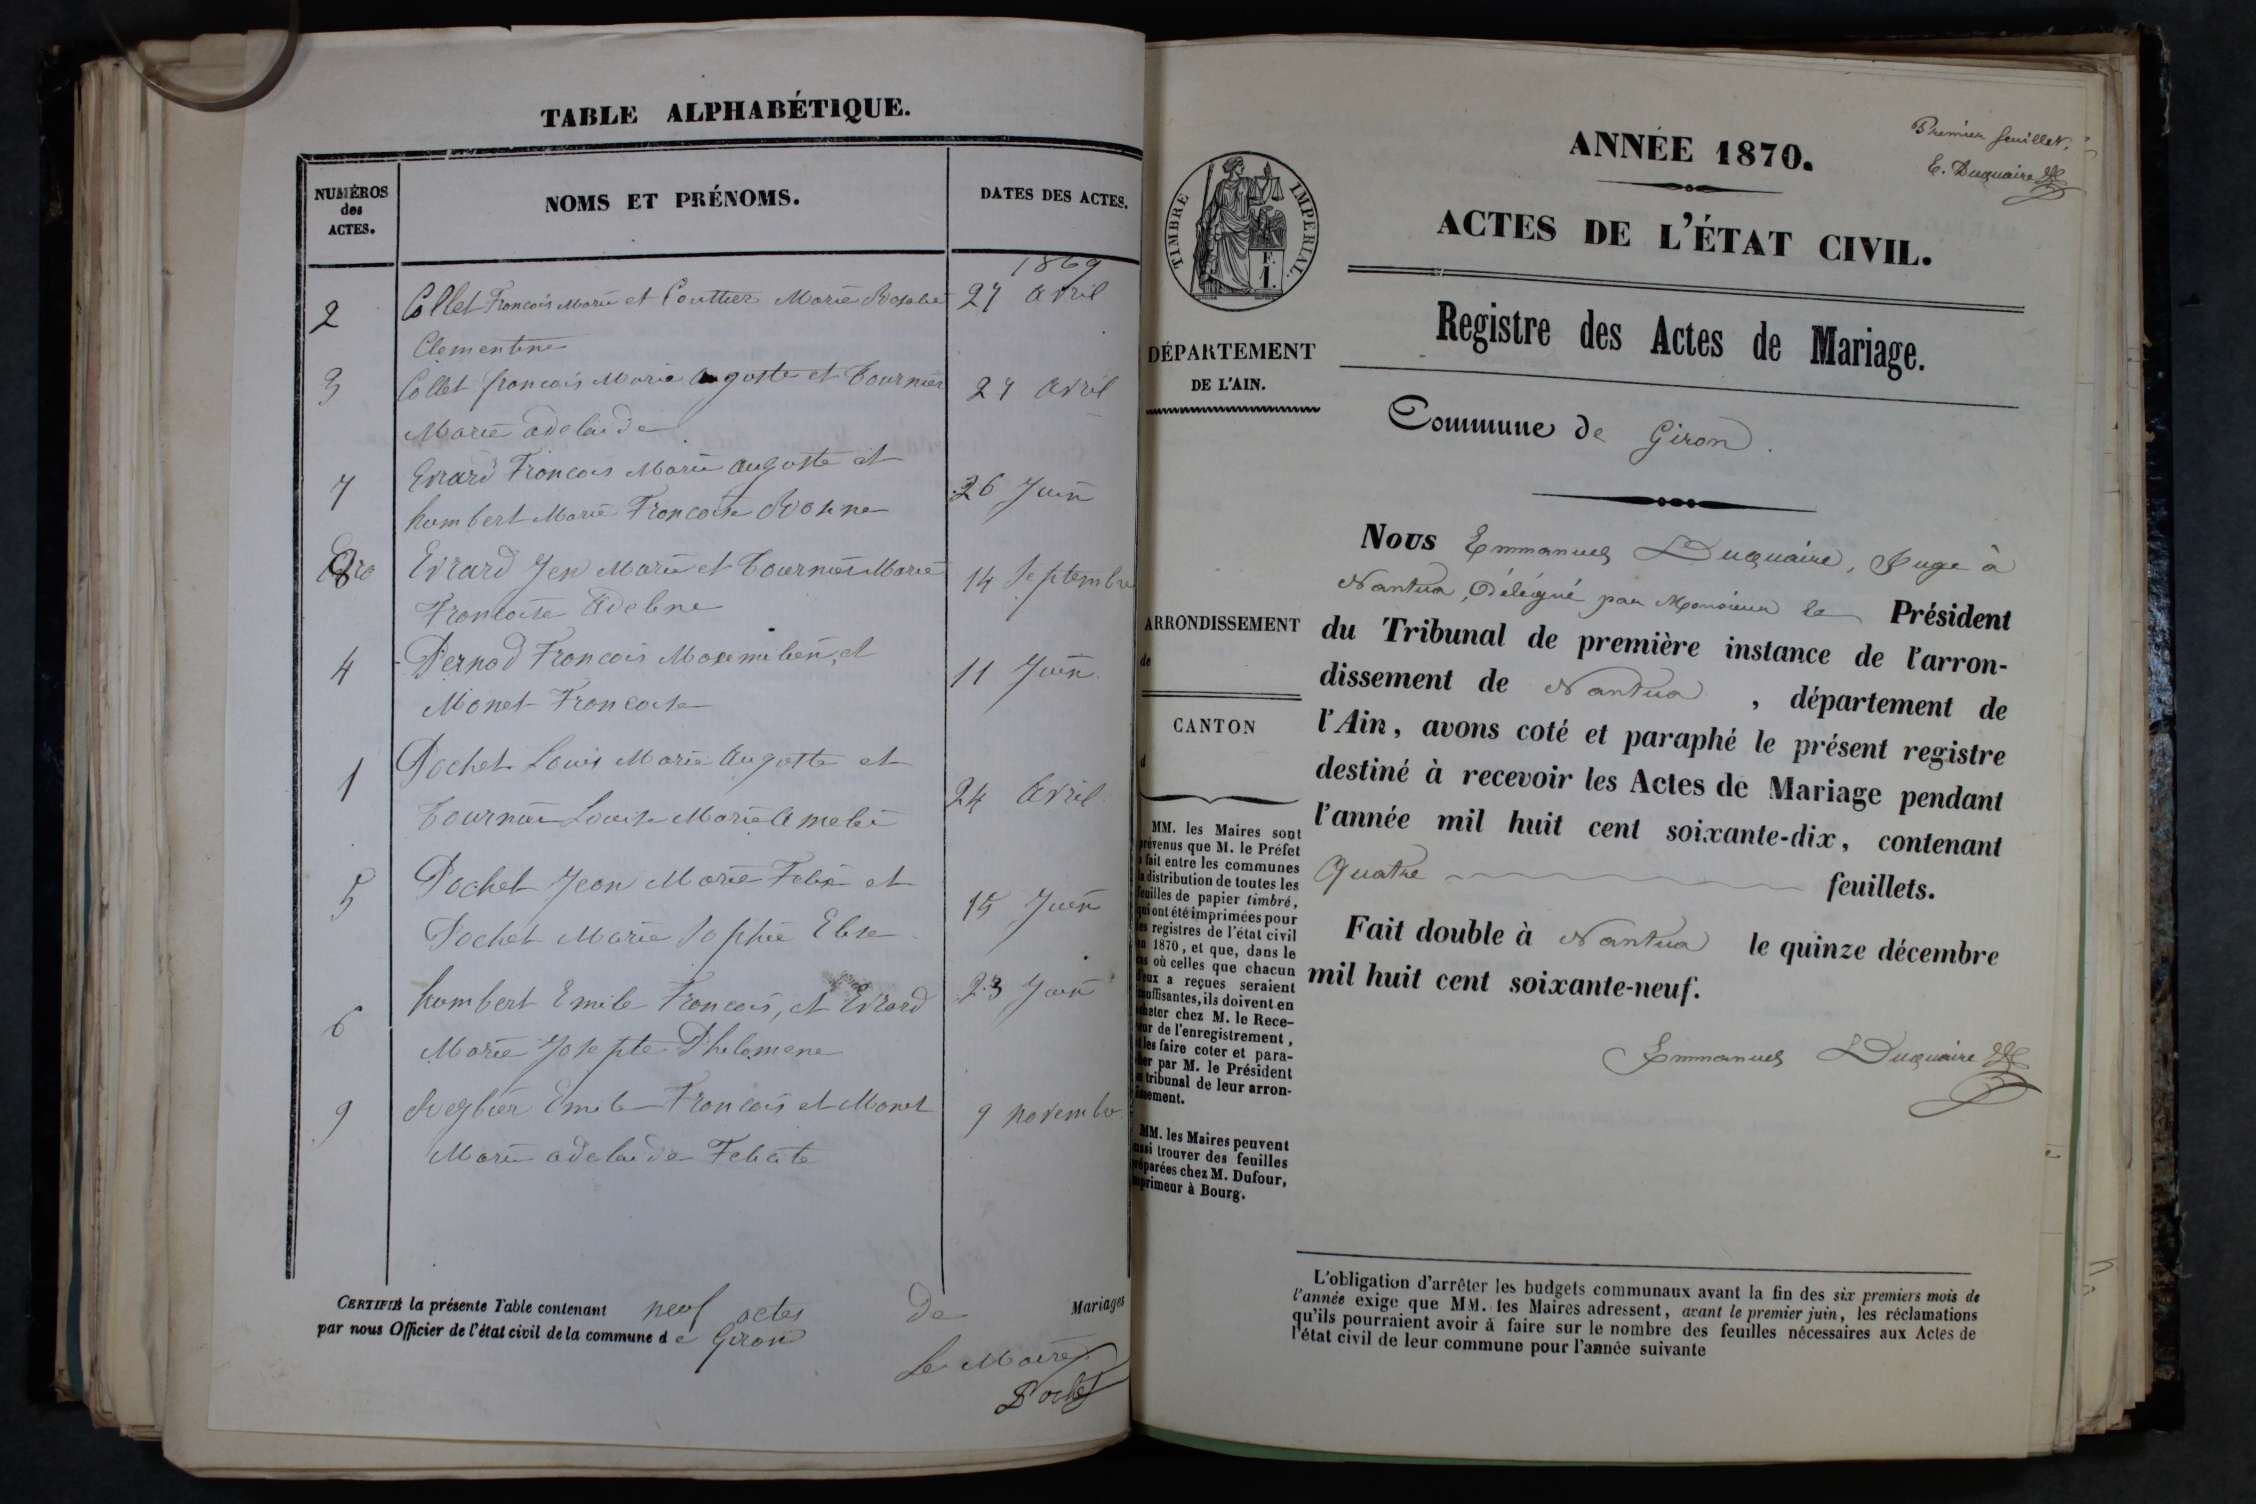 TABLE ALPHABÉTIQUE.
NUMÉROS
des
ACTES.
NOMS ET PRÉNOMS.
DATES DES ACTES.
1869
2 Collet Francois Marie et Couttier Marie Rosalie 27 avril
Clementine
3 Collet francois Marie auguste et Tournier 27 avril
Marie adelaide
7 Evrard Francois Marie auguste et 26 Juin
humbert Marie Francoise Rosine
8 Evrard Jen Marie et Tournier Marie 14 Septembre
Francoise Adeline
4 Pernod Francois Maximilien, et 11 Juin
Monet Francoise
1 Pochet Louis Marie Auguste et 24 Avril
Tournier Louise Marie Amelie
5 Pochet Jean Marie Felix et 15 Juin
Pochet Marie Sophie Elise
6 humbert Emile Francois, et Evrard 23 Juin
Marie Josephte Philomene
9 Emile Francois et Monet 9 novembre
Marie adelaide Felicite
CERTIFIÉ la présente Table contenant neuf actes de Mariages
par nous Officier de l'état civil de la commune de Giron
Le Maire
Pochet
Premier feuillet.
E. Duquaire
ANNÉE 1870.
ACTES DE L'ÉTAT CIVIL.
TIMBRE IMPERIAL.
F.
1.
Registre des Actes de Mariage.
DÉPARTEMENT
DE L'AIN.
Commune de Giron.
Nous Emmanuel Duquaire, Juge à
Nantua, Délégué par Monsieur le Président
du Tribunal de première instance de l'arron-
dissement de Nantua, département de
l'Ain, avons coté et paraphé le présent registre
destiné à recevoir les Actes de Mariage pendant
l'année mil huit cent soixante-dix, contenant
Quatre feuillets.
Fait double à Nantua le quinze décembre
mil huit cent soixante-neuf.
Emmanuel Duquaire
ARRONDISSEMENT
de
CANTON
d
MM. les Maires sont
prévenus que M. le Préfet
a fait entre les communes
la distribution de toutes les
feuilles de papier timbré,
qui ont été imprimées pour
les registres de l'état civil
en 1870, et que, dans le
cas où celles que chacun
d'eux a reçues seraient
insuffisantes, ils doivent en
acheter chez M. le Rece-
veur de l'enregistrement,
et les faire coter et para-
pher par M. le Président
du tribunal de leur arron-
dissement.
MM. les Maires peuvent
aussi trouver des feuilles
préparées chez M. Dufour,
imprimeur à Bourg.
L'obligation d'arrêter les budgets communaux avant la fin des six premiers mois de
l'année exige que MM. les Maires adressent, avant le premier juin, les réclamations
qu'ils pourraient avoir à faire sur le nombre des feuilles nécessaires aux Actes de
l'état civil de leur commune pour l'année suivante